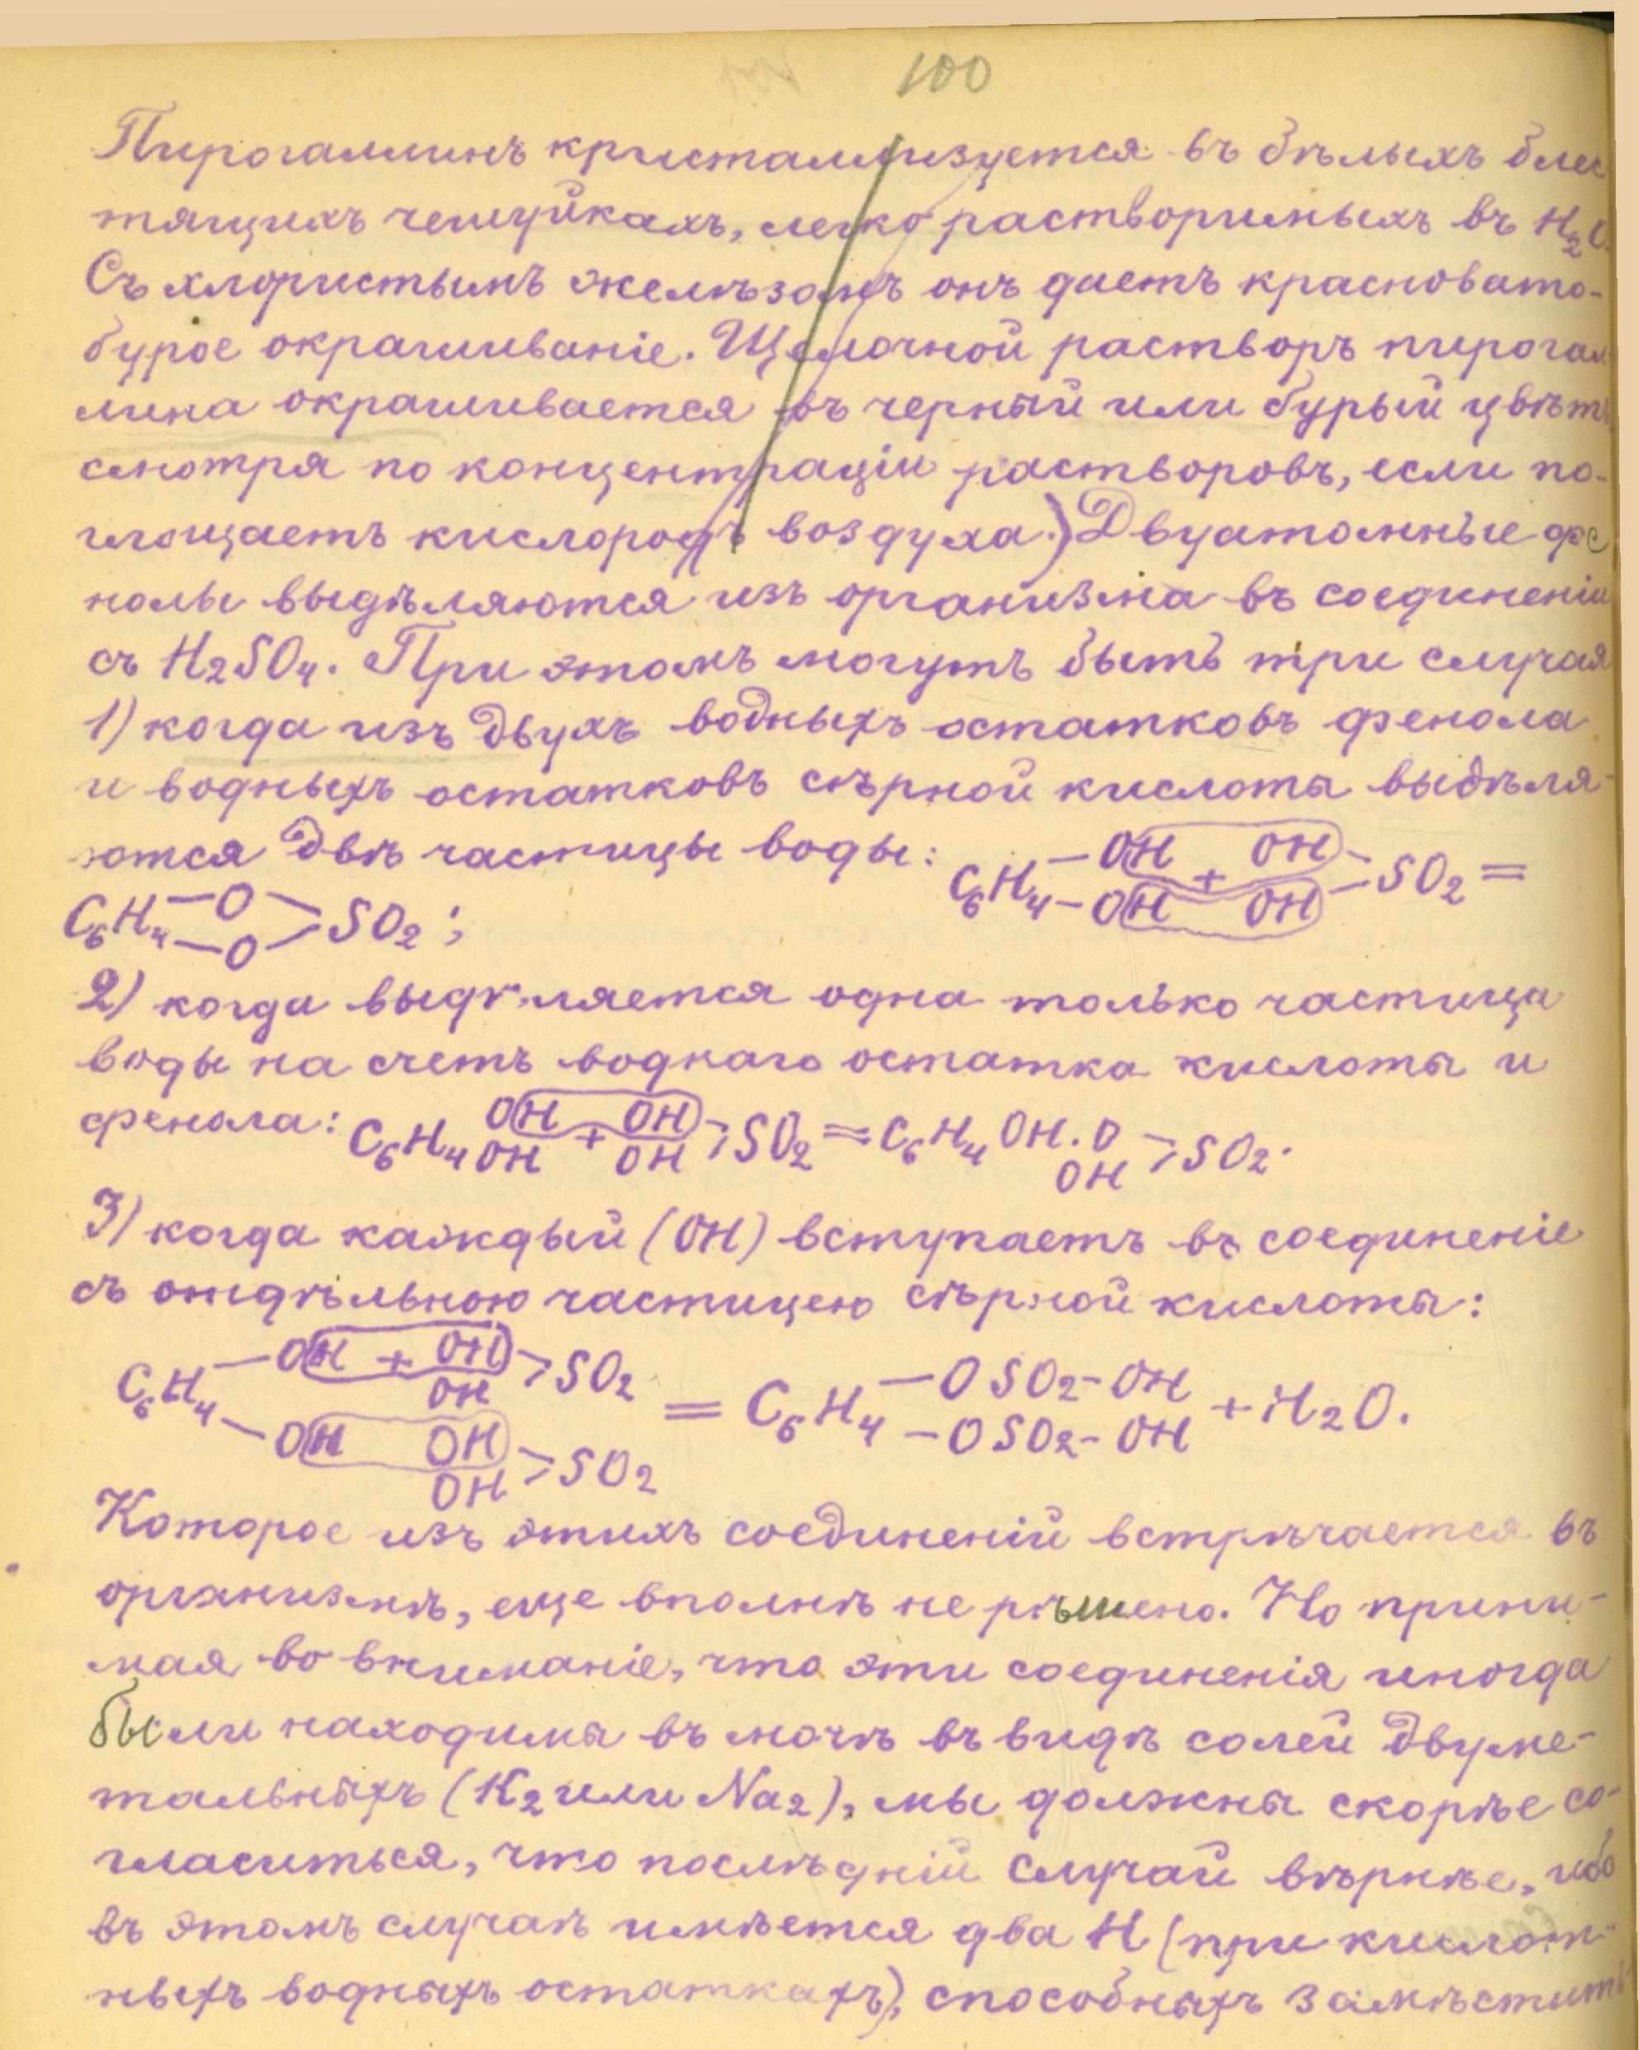 100
Пирогаллинъ кристаллизуется въ бѣлыхъ блес
тящихъ чешуйкахъ, легко растворимыхъ въ H₂O.
Съ хлористымъ желѣзомъ онъ даетъ красновато-
бурое окрашиваніе. Щелочной растворъ пирогал
лина окрашивается въ черный или бурый цвѣтъ
смотря по концентраціи растворовъ, если по-
глощаетъ кислородъ воздуха.) Двуатомные фе
нолы выдѣляются изъ организма въ соединеніи
съ H₂SO₄. При этомъ могутъ быть три случая
1) когда изъ двухъ водныхъ остатковъ фенола
и водныхъ остатковъ сѣрной кислоты выдѣля-
ются двѣ частицы воды: C₆H₄ —OH + OH— —OH OH— SO₂ =
C₆H₄ —O —O > SO₂;
2) когда выдѣляется одна только частица
воды на счетъ воднаго остатка кислоты и
фенола: C₆H₄ OH OH + OH OH > SO₂ = C₆H₄ OH. O OH > SO₂.
3) когда каждый (OH) вступаетъ въ соединеніе
съ отдѣльною частицею сѣрной кислоты:
C₆H₄ —OH + OH OH > SO₂ —OH OH OH > SO₂ = C₆H₄ —OSO₂-OH —OSO₂-OH + H₂O.
Которое изъ этихъ соединеній встрѣчается въ
организмѣ, еще вполнѣ не рѣшено. Но прини-
мая во вниманіе, что эти соединенія иногда
были находимы въ мочѣ въ видѣ солей двуме-
тальныхъ (K₂ или Na₂), мы должны скорѣе со-
гласиться, что послѣдній случай вѣрнѣе, ибо
въ этомъ случаѣ имѣется два H (при кислот-
ныхъ водныхъ остаткахъ), способныхъ замѣстить